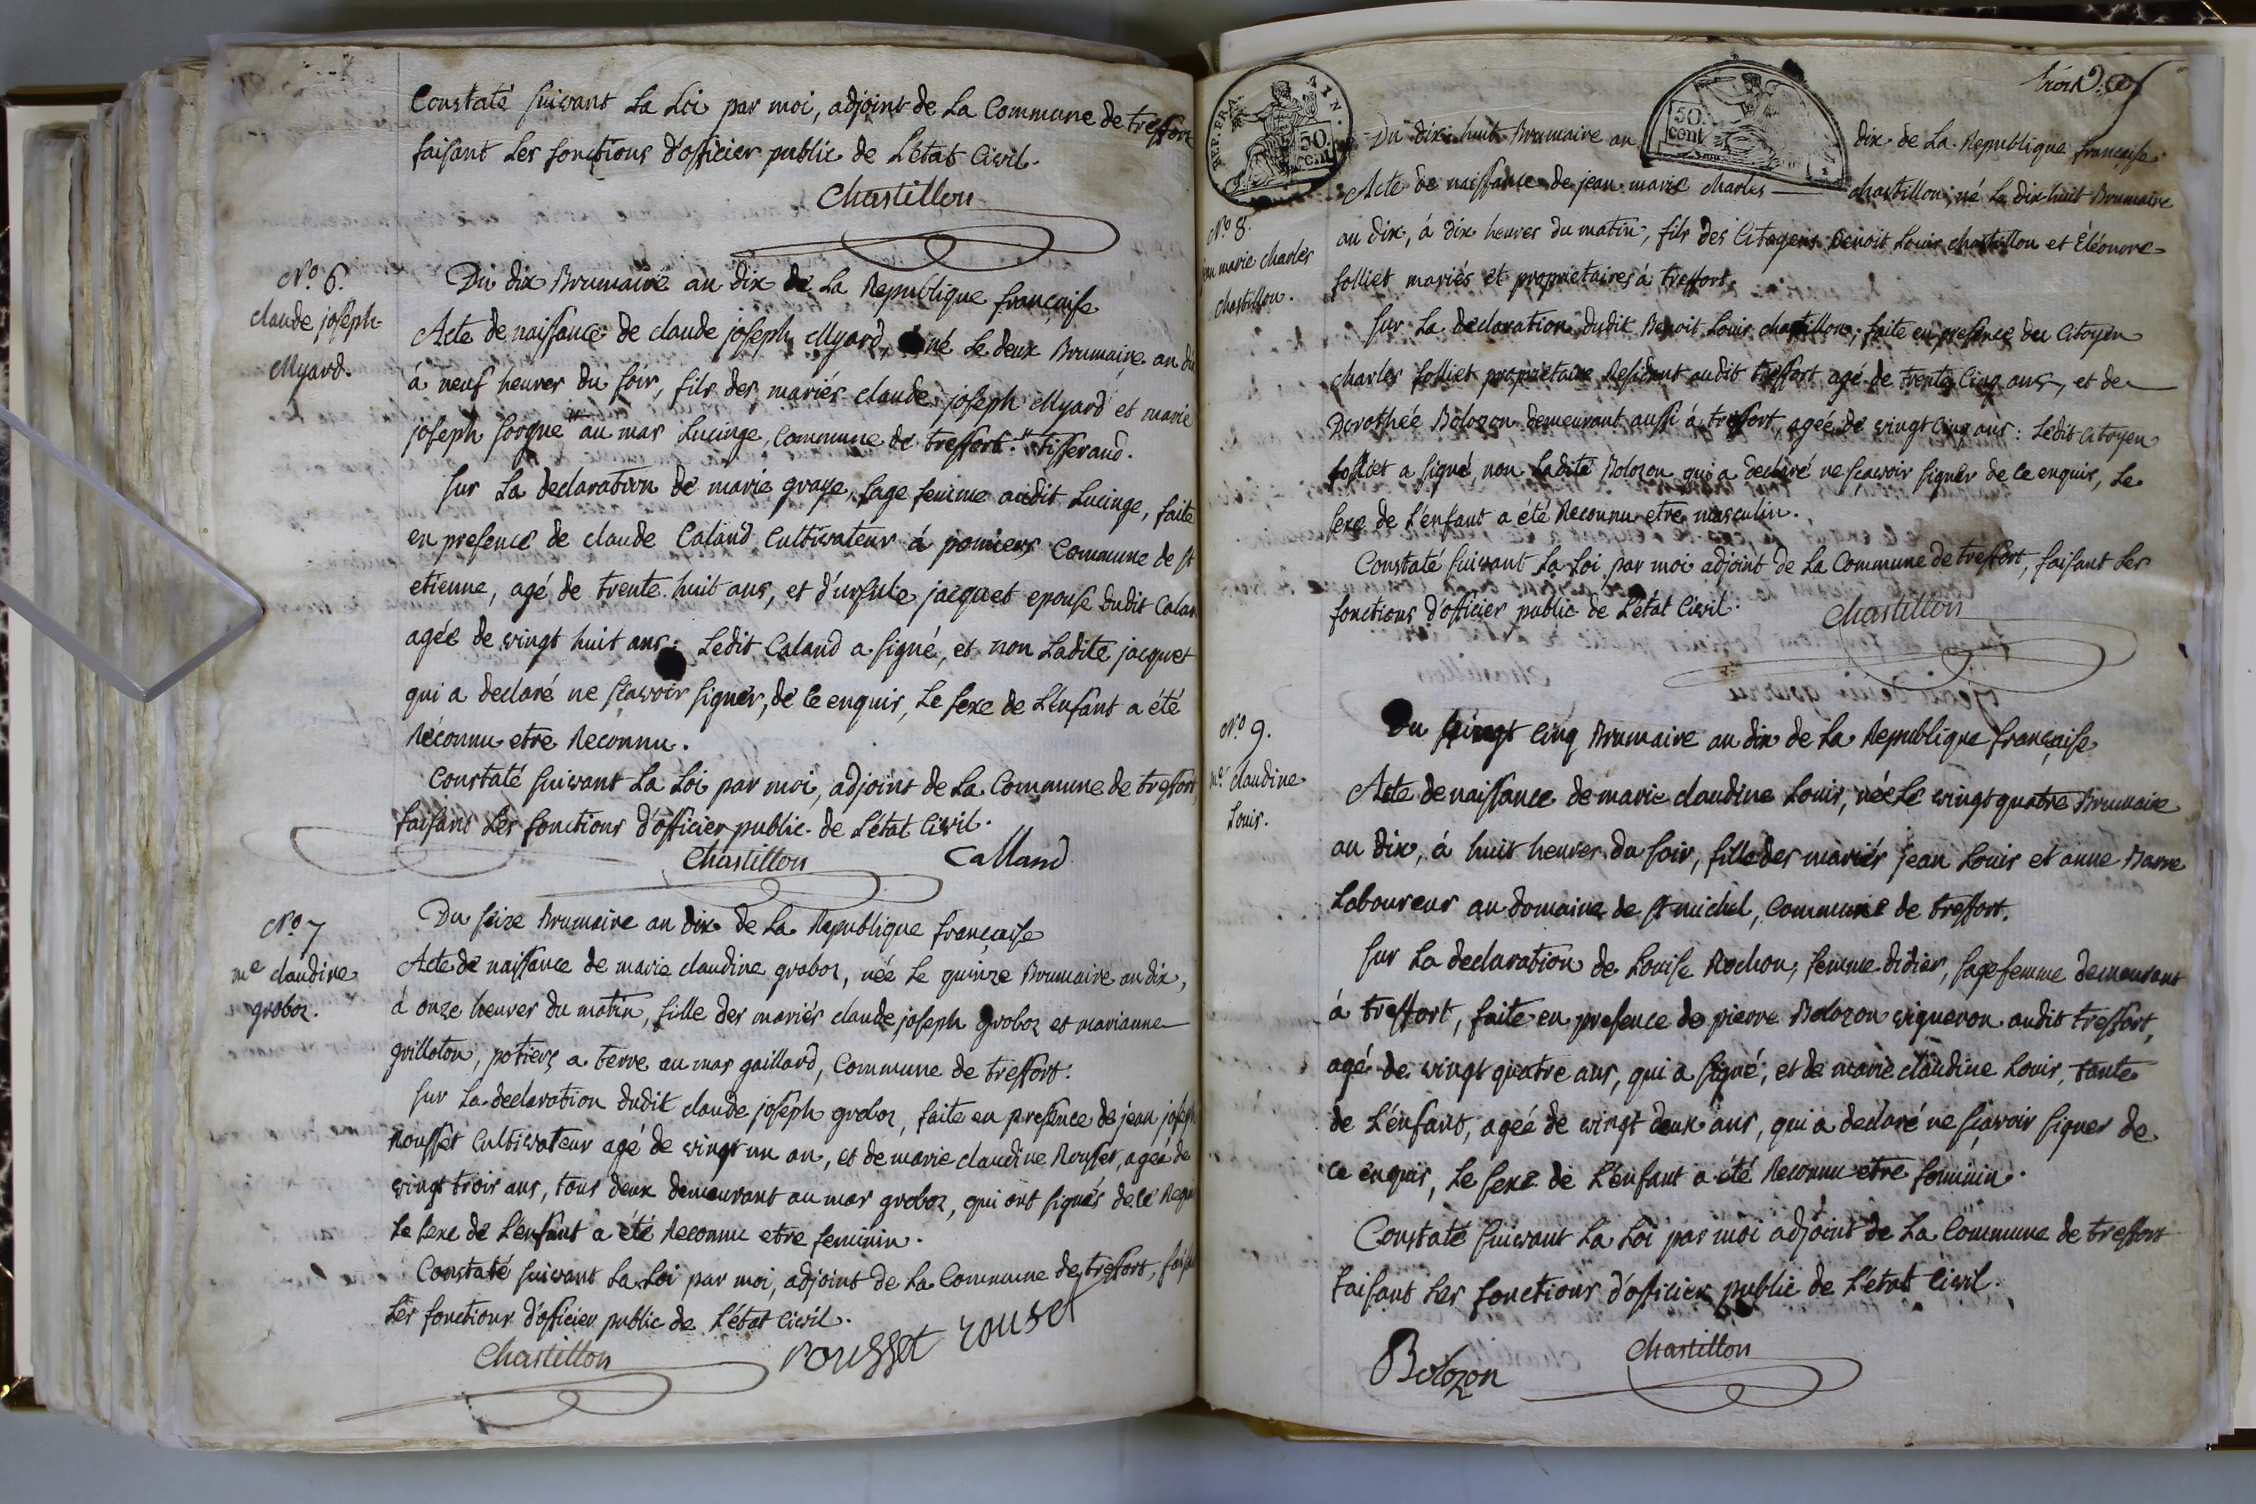 Constaté suivant La Loi par moi, adjoint de La Commune de treffort
faisant Les fonctions d'officier public de L'état Civil.
Chastillon
N.º 6.
claude joseph
Myard.
Du dix Brumaire an dix de La Republique française
Acte de naissance de claude joseph Myard, né Le deux Brumaire an dix
à neuf heures du soir, fils des mariés claude joseph Myard et marie
joseph sorgue au mas Lucinge, Commune de treffort. tisserand.
sur La declaration de marie graye, sage femme audit Lucinge, faite
en presence de claude Caland Cultivateur à pomiers Commune de st
etienne, agé de trente huit ans, et d'ursule jacquet epouse dudit Calan
agée de vingt huit ans; Ledit Caland a signé, et non Ladite jacquet
qui a declaré ne sçavoir signer, de ce enquis, Le sexe de L'enfant a été
Reconnu etre Reconnu.
Constaté suivant La Loi par moi, adjoint de La Commune de treffort,
faisant Les fonctions d'officier public de L'état Civil.
Chastillon Calland
N.º 7
me claudine
groboz.
Du seize Brumaire an dix de La Republique française
Acte de naissance de marie claudine groboz, née Le quinze Brumaire an dix,
à onze heures du matin, fille des mariés claude joseph groboz et marianne
grilloton, potiers a terre au mas gaillard, Commune de treffort.
sur La declaration dudit claude joseph groboz, faite en presence de jean joseph
Rousset Cultivateur agé de vingt un an, et de marie claudine Rousset, ageé de
vingt trois ans, tous deux demeurant au mas groboz, qui ont signés de ce Requis
Le sexe de L'enfant a été Reconnu etre feminin.
Constaté suivant La Loi par moi, adjoint de La Commune de treffort, faisant
Les fonctions d'officier public de L'état Civil.
Chastillon rousset rouset
REP. FRA. 50. cent
50. cent
trois
Du dix huit Brumaire an dix de La Republique française
N.º 8.
jean marie charles
chastillon.
Acte de naissance de jean marie charles chastillon, né Le dix huit Brumaire
an dix, à dix heures du matin, fils des Citoyens Benoit Louis chastillon et Éléonore
folliet mariés et proprietaires à treffort.
sur La declaration dudit Benoit Louis chastillon, faite en presence du Citoyen
charles folliet proprietaire Resident audit treffort agé de trente Cinq ans, et de
Dorothée Bolozon demeurant aussi à treffort, agée de vingt Cinq ans: Ledit Citoyen
folliet a signé, non Ladite Bolozon qui a declaré ne sçavoir signer de ce enquis, Le
sexe de L'enfant a été Reconnu etre masculin.
Constaté suivant La Loi par moi adjoint de La Commune de treffort, faisant Les
fonctions d'officier public de L'état Civil.
Chastillon
N.º 9.
me claudine
Louis.
Du vingt Cinq Brumaire an dix de La Republique française
Acte de naissance de marie claudine Louis, née Le vingt quatre Brumaire
an dix, à huit heures du soir, fille des mariés jean Louis et anne Barre
Laboureur au domaine de st michel, Commune de treffort.
sur La declaration de Louise Rochon, femme didier, sage femme demeurant
à treffort, faite en presence de pierre Bolozon vigneron audit treffort,
agé de vingt quatre ans, qui a signé, et de marie claudine Louis, tante
de L'enfant, ageé de vingt deux ans, qui a declaré ne sçavoir signer de
ce enquis, Le sexe de L'enfant a été Reconnu etre feminin.
Constaté suivant La Loi par moi adjoint de La Commune de treffort
faisant Les fonctions d'officier public de L'état Civil.
Bolozon Chastillon